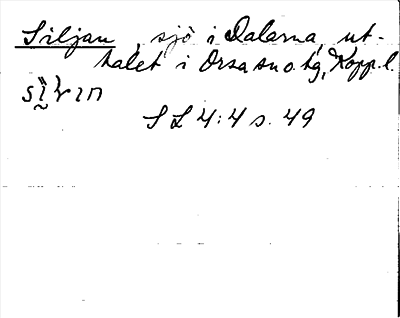 Siljan, sjö i Dalarna, ut-
talet i Orsa sn o. tg, Kopp. l.
S L 4:4 s. 49